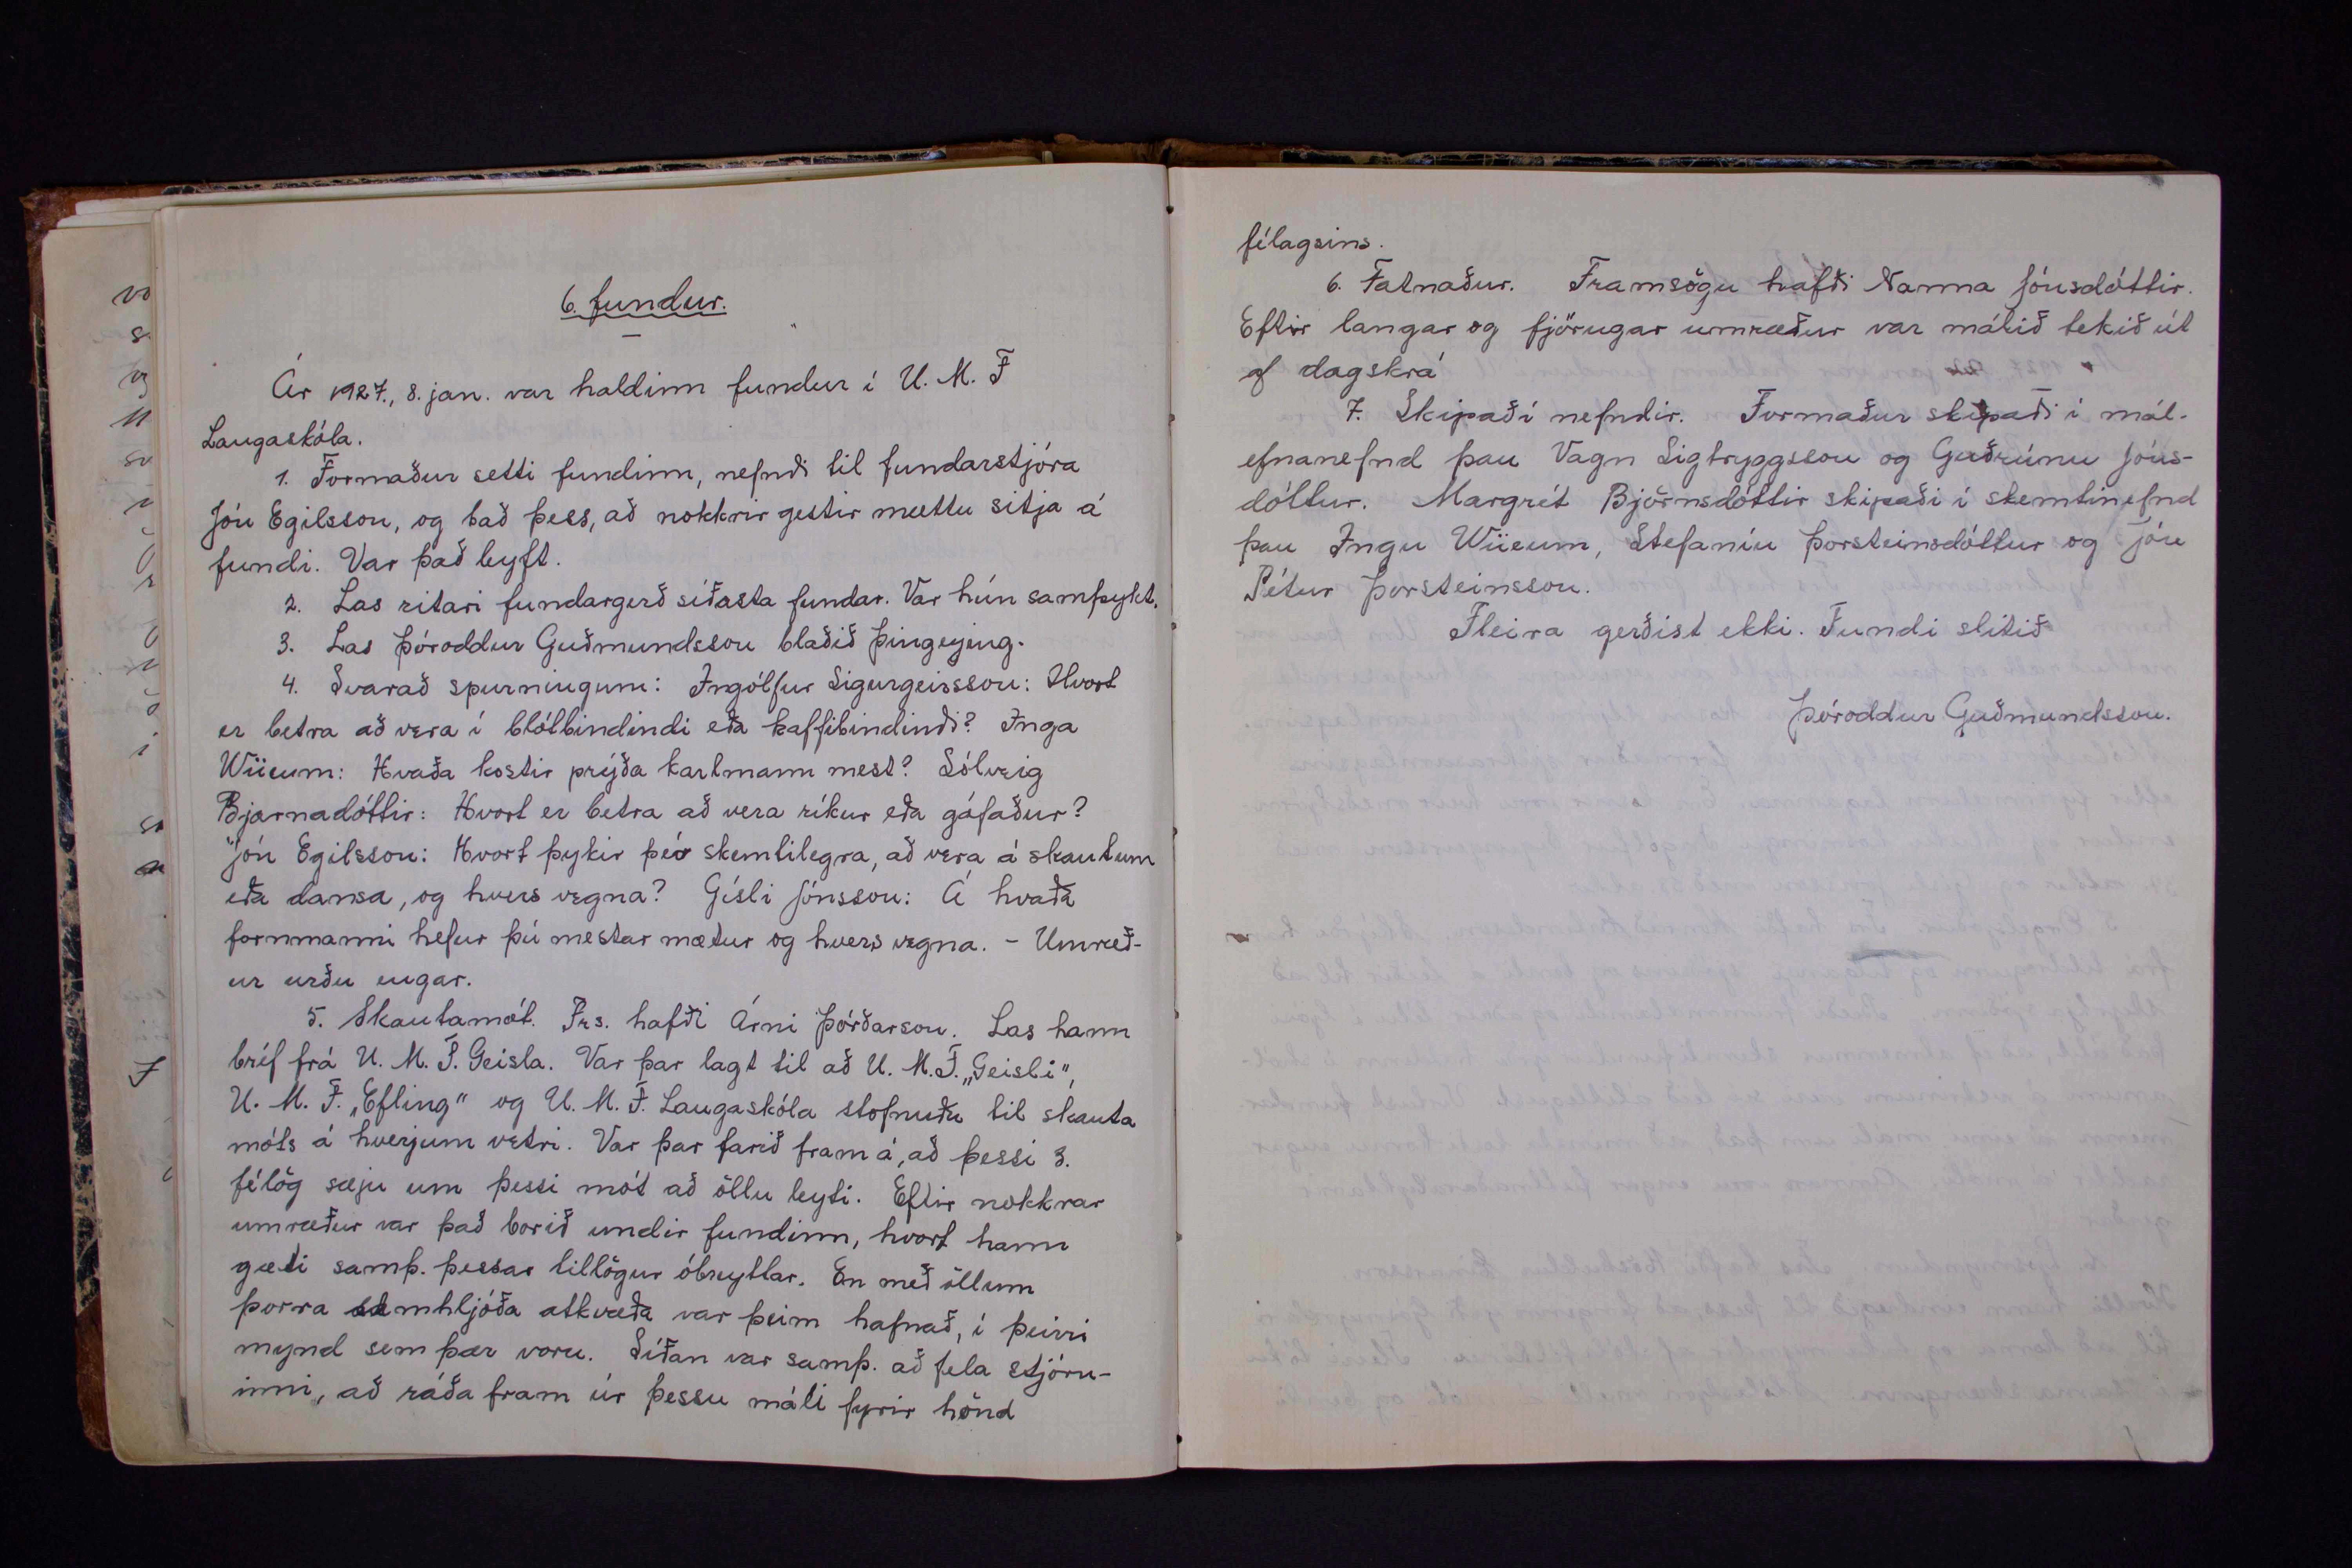 6. fundur.
Ár 1927., 8. jan. var haldinn fundur í U. M. F
Laugaskóla.
1. Formaður setti fundinn, nefndi til fundarstjóra
Jón Egilsson, og bað þess, að nokkrir gestir mættu sitja á
fundi. Var það leyft.
2. Las ritari fundargerð síðasta fundar. Var hún samþykt.
3. Las Þóroddur Guðmundsson blaðið Þingeying.
4. Svarað spurningum: Ingólfur Sigurgeirsson: Hvort
er betra að vera í blótbindindi eða kaffibindindi? Inga
Wiium: Hvaða kostir prýða karlmann mest? Sólveig
Bjarnadóttir: Hvort er betra að vera ríkur eða gáfaður?
Jón Egilsson: Hvort þykir þér skemtilegra, að vera á skautum
eða dansa, og hvers vegna? Gísli Jónsson: Á hvaða
fornmanni hefur þú mestar mætur og hvers vegna. - Umræð-
ur urðu engar.
5. Skautamót. Frs. hafði Árni Þórðarson. Las hann
bréf frá U. M. F. Geisla. Var þar lagt til að U. M. F. „Geisli",
U. M. F. „Efling" og U. M. F. Laugaskóla stofnuðu til skauta
móts á hverjum vetri. Var þar farið fram á, að þessi 3.
félög sæju um þessi mót að öllu leyti. Eftir nokkrar
umræður var það borið undir fundinn, hvort hann
gæti samþ. þessar tillögur óbreyttar. En með öllum
þorra samhljóða atkvæða var þeim hafnað, í þeirri
mynd sem þær voru. Síðan var samþ. að fela stjórn-
inni, að ráða fram úr þessu máli fyrir hönd
félagsins.
6. Fatnaður. Framsögu hafði Nanna Jónsdóttir.
Eftir langar og fjörugar umræður var málið tekið út
af dagskrá
7. Skipað í nefndir. Formaður skipaði í mál-
efnanefnd þau Vagn Sigtryggsson og Guðrúnu Jóns-
dóttur. Margrét Björnsdóttir skipaði í skemtinefnd
þau Ingu Wiium, Stefaníu Þorsteinsdóttur og Jón
Pétur Þorsteinsson.
Fleira gerðist ekki. Fundi slitið
Þóroddur Guðmundsson.